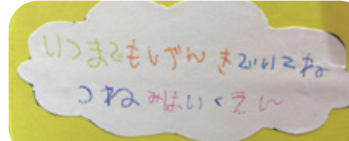 いつまでもしぜんきでいてね
つねみほいくえん